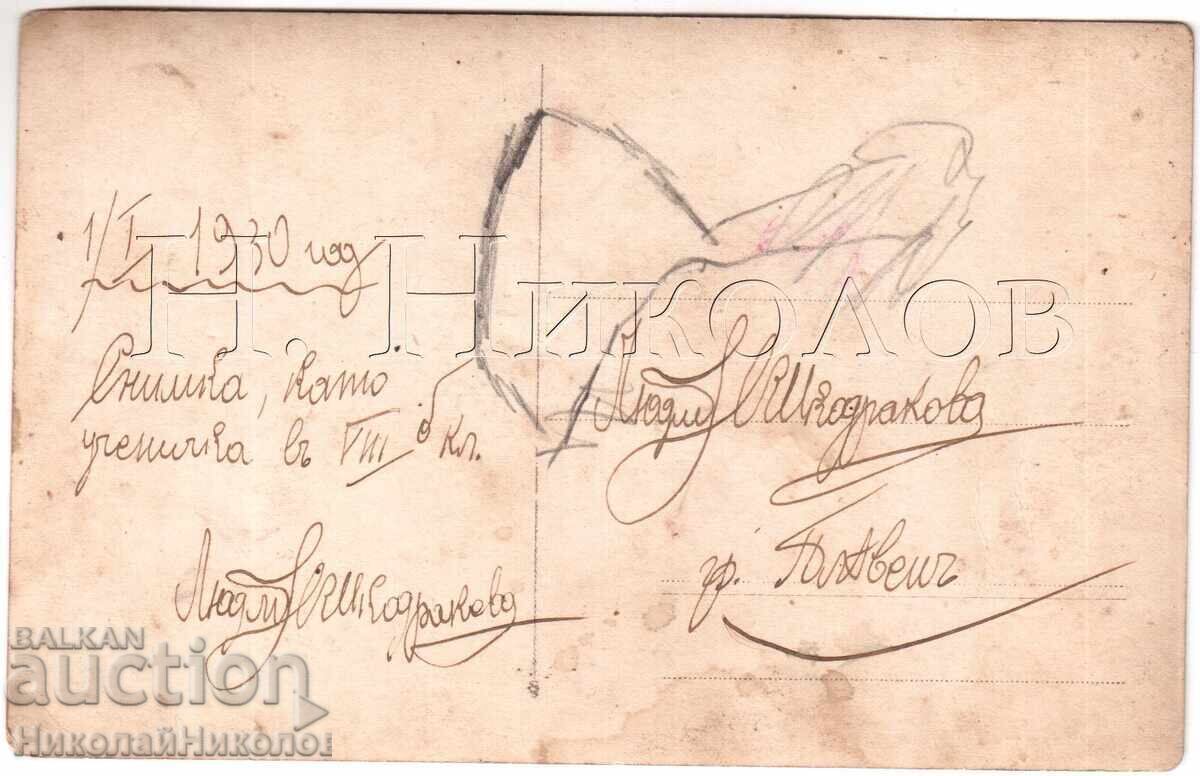 1/I 1930 год
Снимка, като
ученичка въ VIII кл.
Шкодракова
Шкодракова
гр. Плѣвенъ
Н. Николов
BALKAN
auction
НиколайНиколов